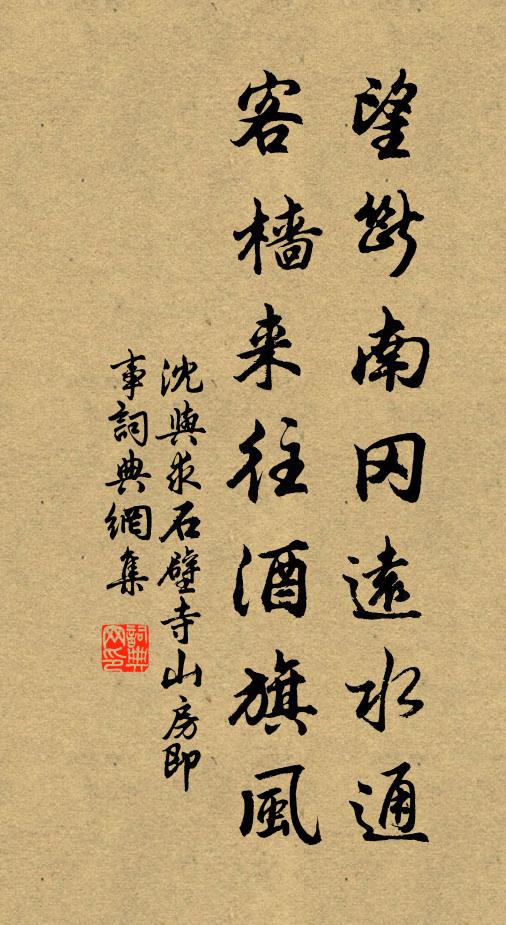 望斷南冈遠水通
客檣来往酒旗風
沈與求石壁寺山房即
事詞典網集
詞典
网印